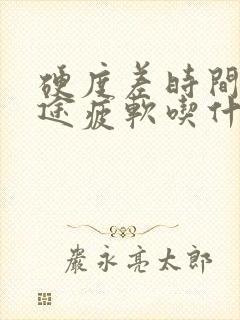 硬度差時間
途疲軟喫什
嚴永亮太郎